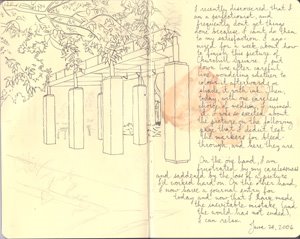 I recently discovered that I
am a perfectionist, and
frequently don't get things
done because I can't do them
to my satisfaction. I ago-
nized for a week about how
to finish this picture of
Churchill Square. I put
down line after careful
line, wondering whether to
colour it afterwards or
shade it with ink. Then,
today, with one careless
choice of medium, I ruined
it. I was so excited about
the picture on the following
page that I didn't test
the markers for bleed
through, and here they are.
On the one hand, I am
frustrated by my carelessness
and saddened by the loss of a picture
I'd worked hard on. On the other hand,
I now have a journal entry for
today and now that I have made
the inevitable mistake (and
the world has not ended),
I can relax.
June 28, 2006